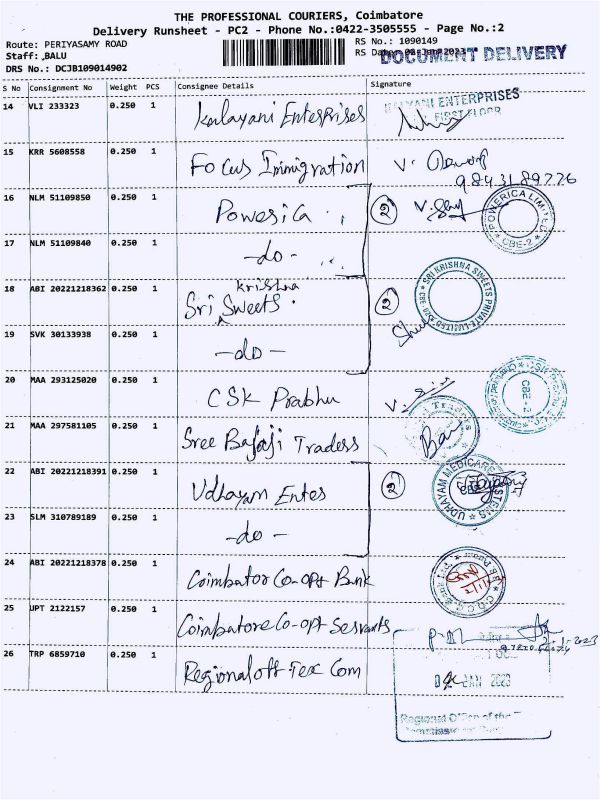 THE PROFESSIONAL COURIERS, Coimbatore
Delivery Runsheet - PC2 - Phone No.:0422-3505555 - Page No.:2
Route: PERIYASAMY ROAD RS No.: 1090149
Staff: BALU RS Date: 02-Jan-2023 DOCUMENT DELIVERY
DRS No.: DCJB109014902
S No Consignment No Weight PCS Consignee Details Signature
14 VLI 233323 0.250 1 Kalayani Enterprises KALYANI ENTERPRISES
FIRST FLOOR
15 KRR 5608558 0.250 1 Focus Immigration V.
9843189776
16 NLM 51109850 0.250 1 Powerica 2 POWERICA LIMITED CBE-2
17 NLM 51109840 0.250 1 -do-
18 ABI 20221218362 0.250 1 Sri Krishna Sweets 2 SRI KRISHNA SWEETS PRIVATE LIMITED CBE
19 SVK 30133938 0.250 1 -do-
20 MAA 293125020 0.250 1 CSK Prabhu CBE-2
21 MAA 297581105 0.250 1 Sree Balaji Traders Traders
22 ABI 20221218391 0.250 1 Udhayam Entes 2 UDHAYAM MEDICARE SYSTEMS
23 SLM 310789189 0.250 1 -do-
24 ABI 20221218378 0.250 1 Coimbator Co-opt Bank
25 UPT 2122157 0.250 1 Coimbatore Co-opt Servants
26 TRP 6859710 0.250 1 Regional off Tex Com
JAN 2023
Regional Office of the